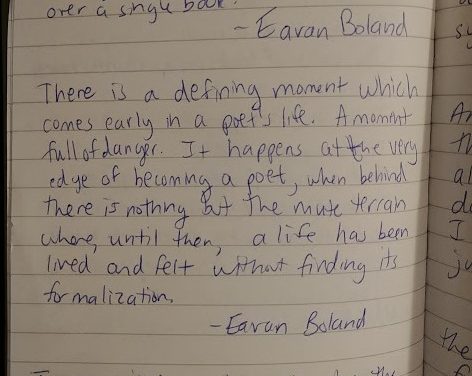 over a single book.
- Eavan Boland
There is a defining moment which
comes early in a poet's life. A moment
full of danger. It happens at the very
edge of becoming a poet, when behind
there is nothing but the mute terrain
where, until then, a life has been
lived and felt without finding its
formalization.
- Eavan Boland